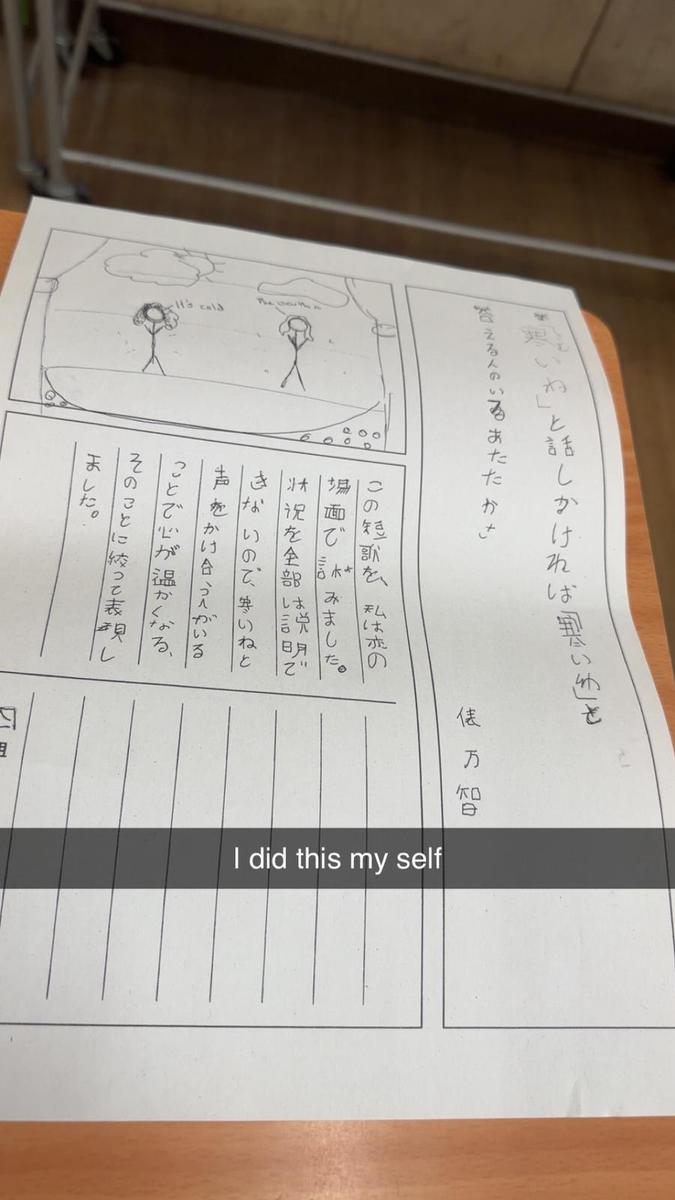 「寒いね」と話しかければ「寒いね」と
答える人のいるあたたかさ
俵万智
It's cold
The weather
この短歌を、私は恋の
場面で詠みました。
状況を全部は説明で
きないので、寒いねと
声をかけ合う人がいる
ことで心が温かくなる、
そのことに絞って表現し
ました。
I did this my self